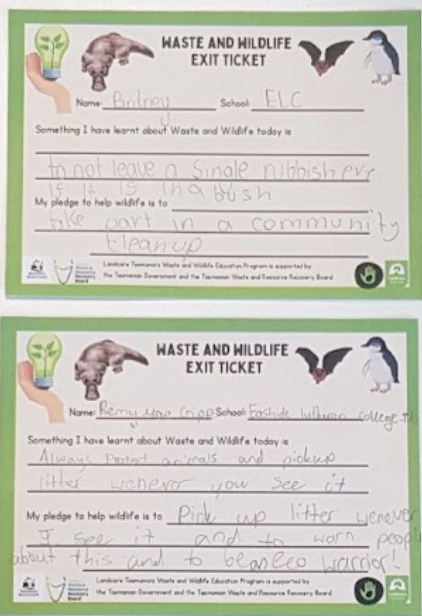 WASTE AND WILDLIFE
EXIT TICKET
Name: Britney School: ELC
Something I have learnt about Waste and Wildlife today is
to not leave a single rubbish evr
if it is in a bush
My pledge to help wildlife is to
take part in a community
cleanup
Landcare Tasmania's Waste and Wildlife Education Program is supported by
the Tasmanian Government and the Tasmanian Waste and Resource Recovery Board
WASTE AND WILDLIFE
EXIT TICKET
Name: Remy School: Eastside Lutheran college
Something I have learnt about Waste and Wildlife today is
Always Protect animals and pickup
litter whenever you see it
My pledge to help wildlife is to Pick up litter wenever
I see it and to warn people
about this and to be an eco warrior!
Landcare Tasmania's Waste and Wildlife Education Program is supported by
the Tasmanian Government and the Tasmanian Waste and Resource Recovery Board